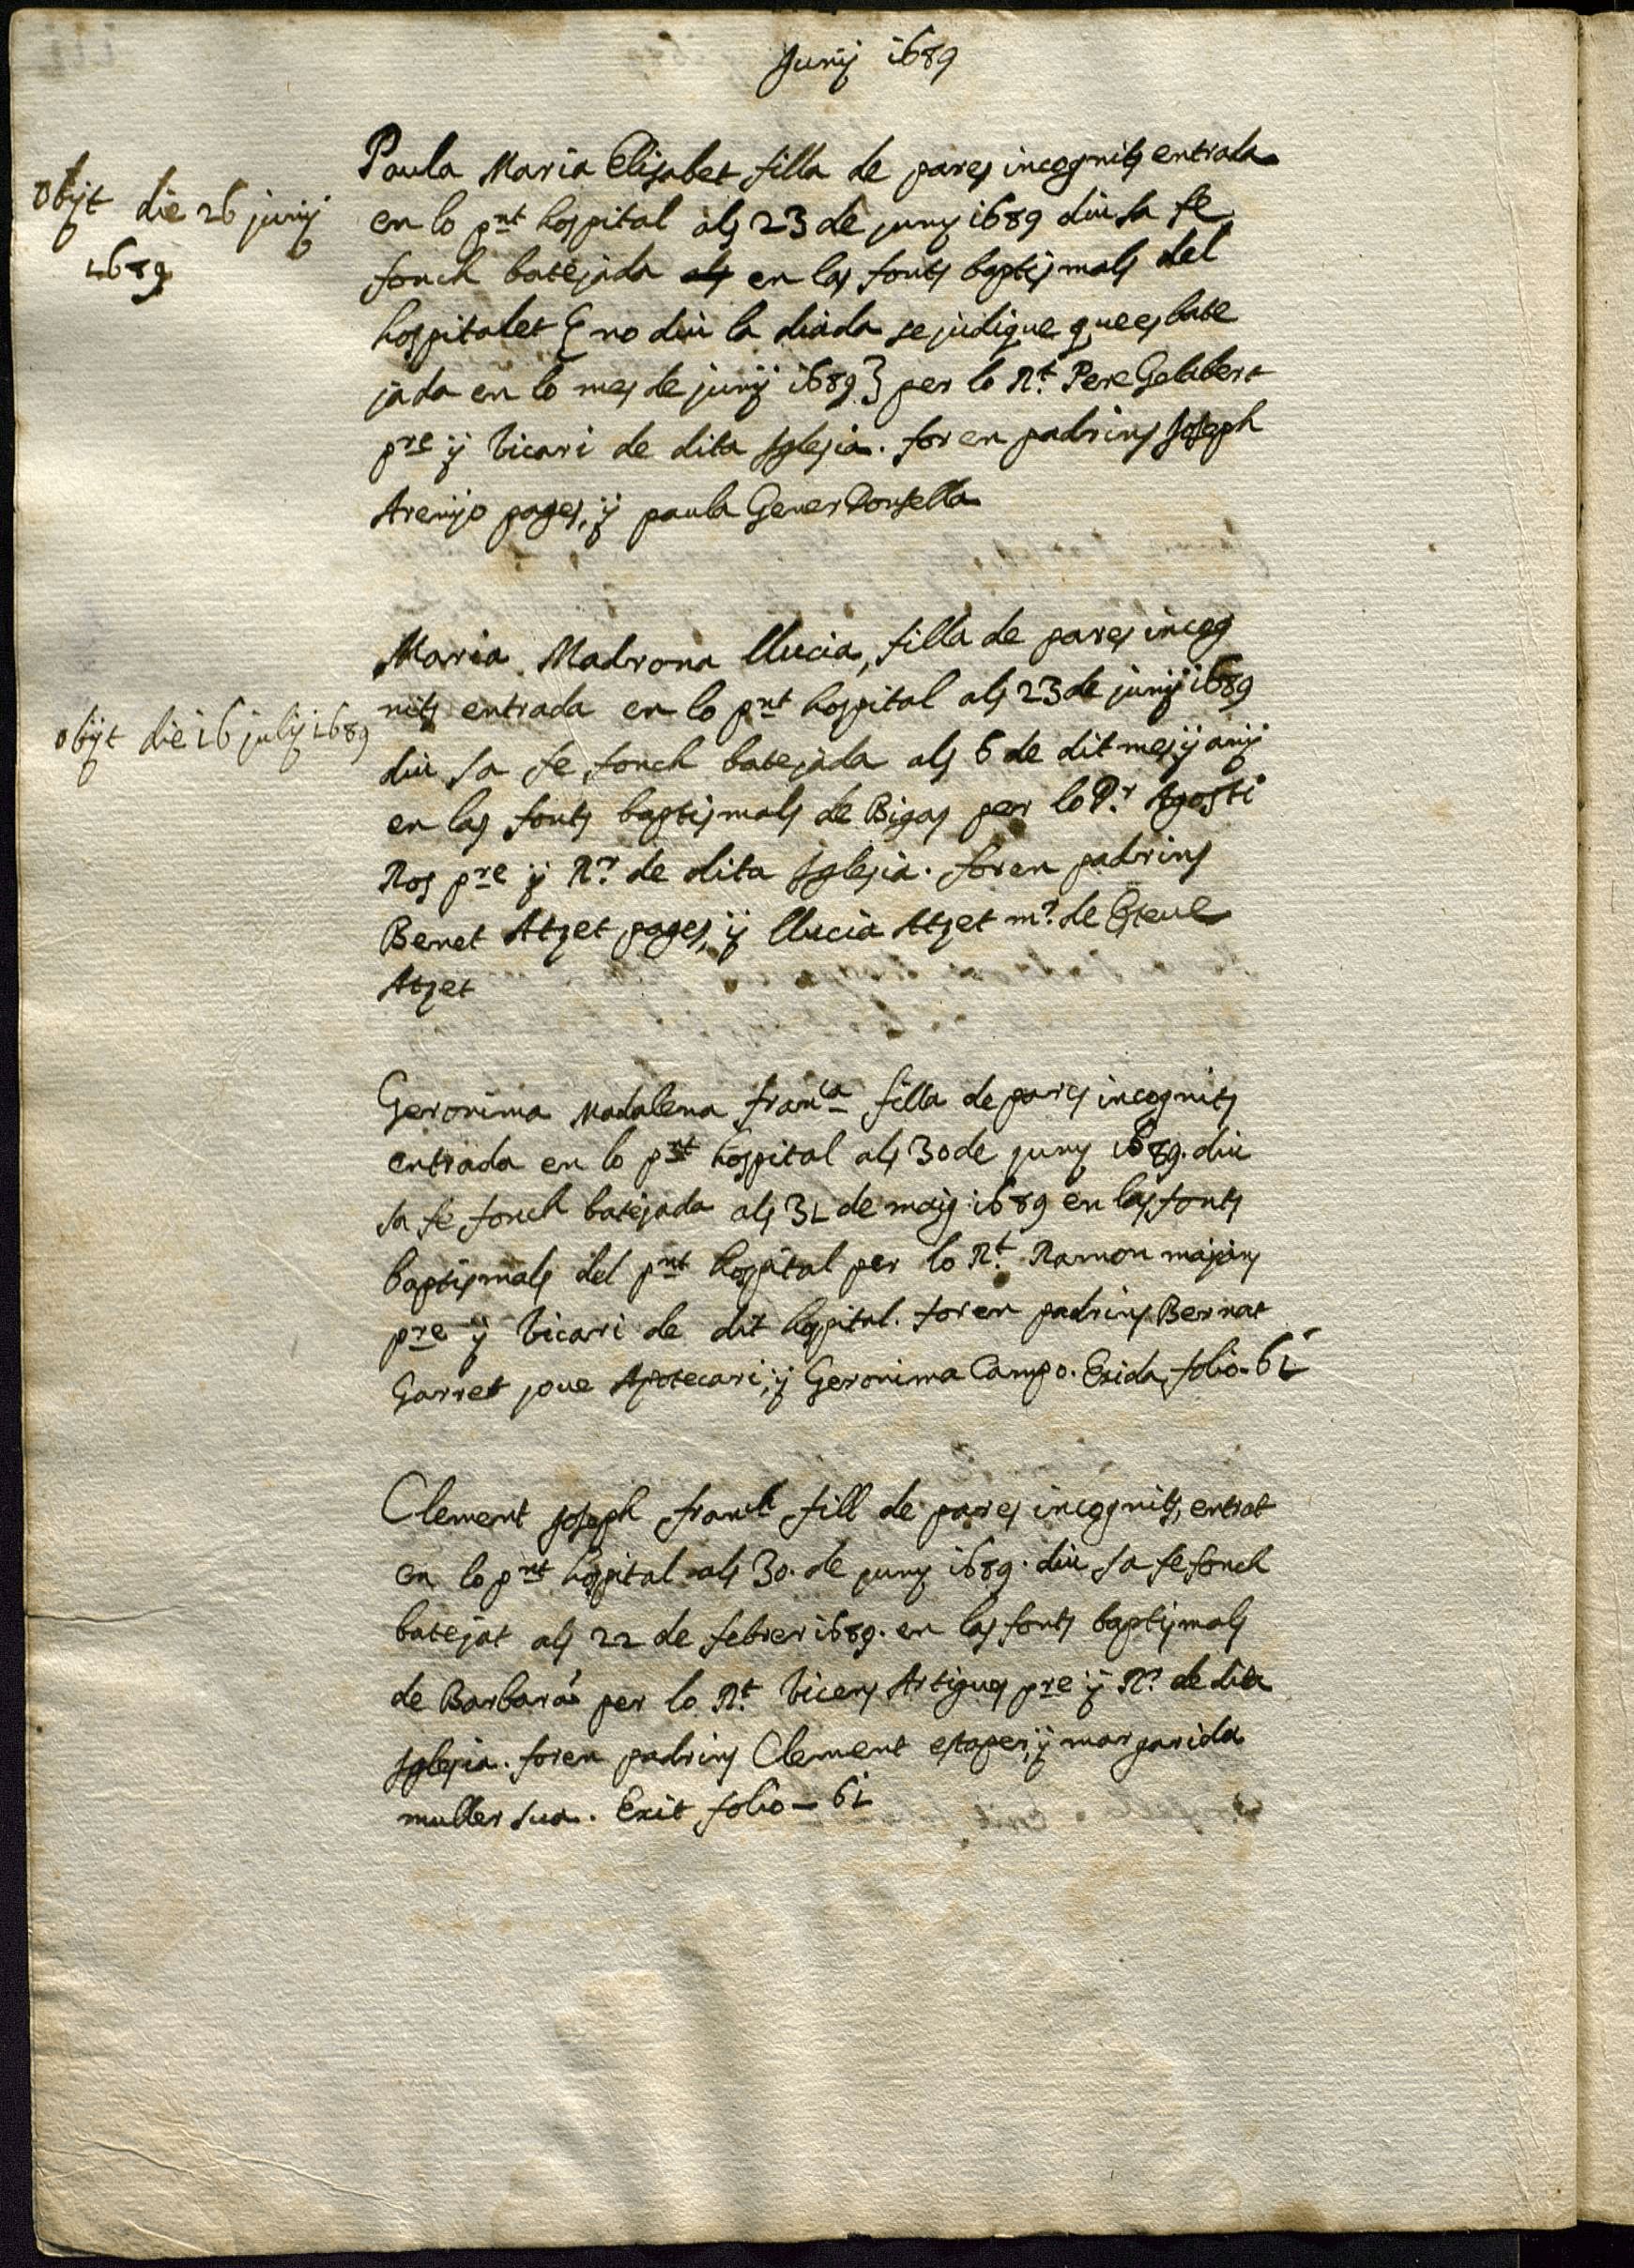 Junij 1689
Paula Maria Elisabet filla de pares incognits entrada
en lo pnt hospital als 23 de juny 1689 diu sa fe
obijt die 26 junij
1689
fonch batejada als en las fonts baptismals del
hospitalet { no diu la diada se judique que es bate
jada en lo mes de junij 1689 } per lo Rt. Pere Gelabert
pre ÿ Vicari de dita Iglesia. foren padrins Joseph
Arenyo pages, ÿ paula Gener Donsella
Maria Madrona Llucia, filla de pares incog
nits entrada en lo pnt hospital als 23 de junij 1689
obijt die 16 julij 1689
diu sa fe fonch batejada als 6 de dit mes ÿ anÿ
en las fonts baptismals de Bigas per lo Dr. Agosti
Ros pre ÿ Rr. de dita Iglesia. foren padrins
Benet Atzet pages, ÿ Llucia Atzet mr. de Esteue
Atzet
Geronima Madalena franca filla de pares incognits
entrada en lo pnt hospital als 30 de juny 1689. diu
sa fe fonch batejada als 31 de maig 1689 en las fonts
baptismals del pnt hospital per lo Rt. Ramon majins
pre ÿ Vicari de dit hospital. foren padrins Bernat
Garret joue Apotecari, ÿ Geronima Campo. Exida folio-61
Clement Joseph franch fill de pares incognits, entrat
en lo pnt hospital als 30. de juny 1689. diu sa fe fonch
batejat als 22 de febrer 1689. en las fonts baptismals
de Barbarà per lo Rt. Vicens Artigues pre ÿ Rr. de dita
Iglesia. foren padrins Clement estaper, ÿ margarida
muller sua. Exit folio - 61